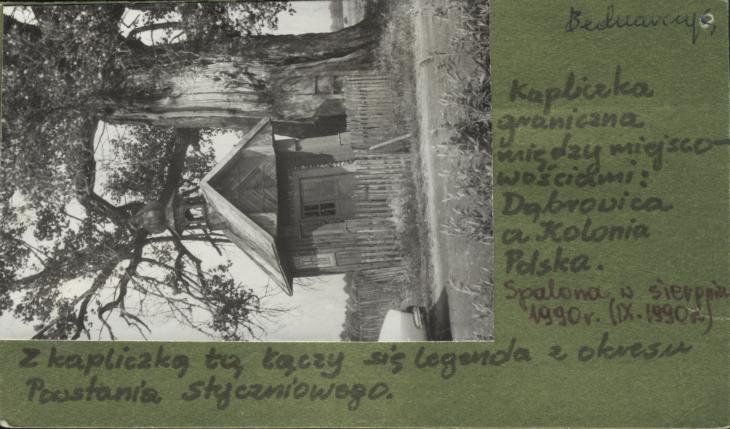 Bednarczyk
Kapliczka
graniczna
między miejsco-
wościami:
Dąbrowica
a Kolonia
Polska.
Spalona w sierpniu
1990r. (IX.1990r.)
Z kapliczką tą łączy się legenda z okresu
Powstania Styczniowego.